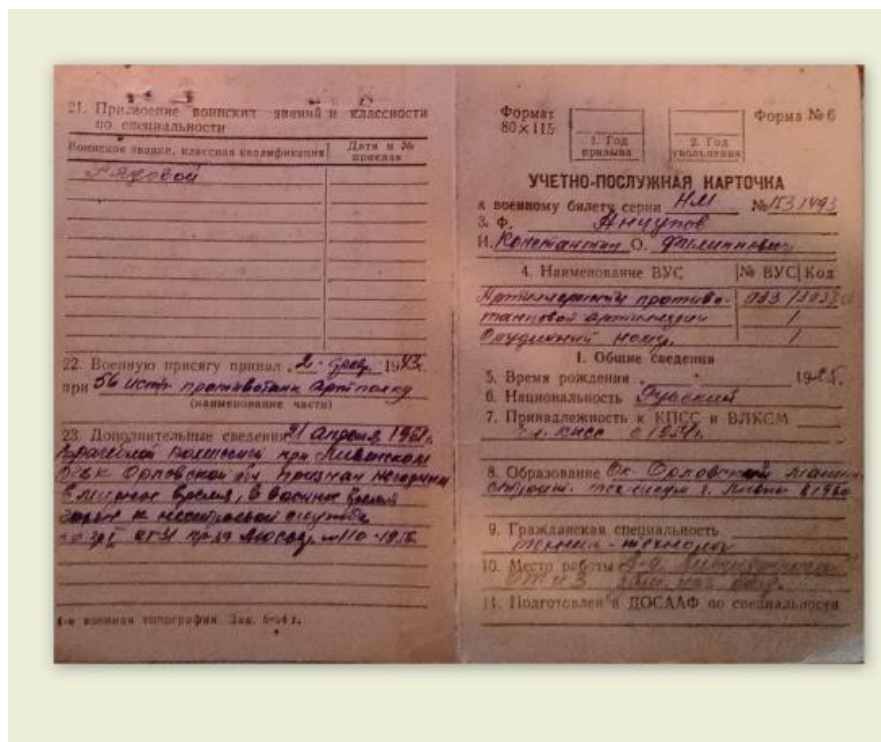 21. Присвоение воинских званий и классности
по специальности
Воинское звание, классная квалификация
Дата и №
приказа
Рядовой
22. Военную присягу принял „2“ февр. 1943г.
при 56 истр. противотанк. артполку
(наименование части)
23. Дополнительные сведения 21 апреля 1961г.
при Ливенском
РВК Орловской обл признан негодным
в мирное время, в военное время
годен к нестроевой службе
4-я военная типография Зак.
Формат
80×115
1. Год
призыва
2. Год
увольнения
Форма № 6
УЧЕТНО-ПОСЛУЖНАЯ КАРТОЧКА
к военному билету серии НМ № 1531493
3. Ф. Анцупов
И. Константин О. Филиппович
4. Наименование ВУС
№ ВУС
Код
противо-
танковой артиллерии
Орудийный номер.
I. Общие сведения
5. Время рождения 1925г.
6. Национальность Русский
7. Принадлежность к КПСС и ВЛКСМ
чл. КПСС с
8. Образование Ок. Орловский машино-
строит. техникум г. Ливны в 1960
9. Гражданская специальность
техник-технолог
10. Место работы
11. Подготовлен в ДОСААФ по специальности